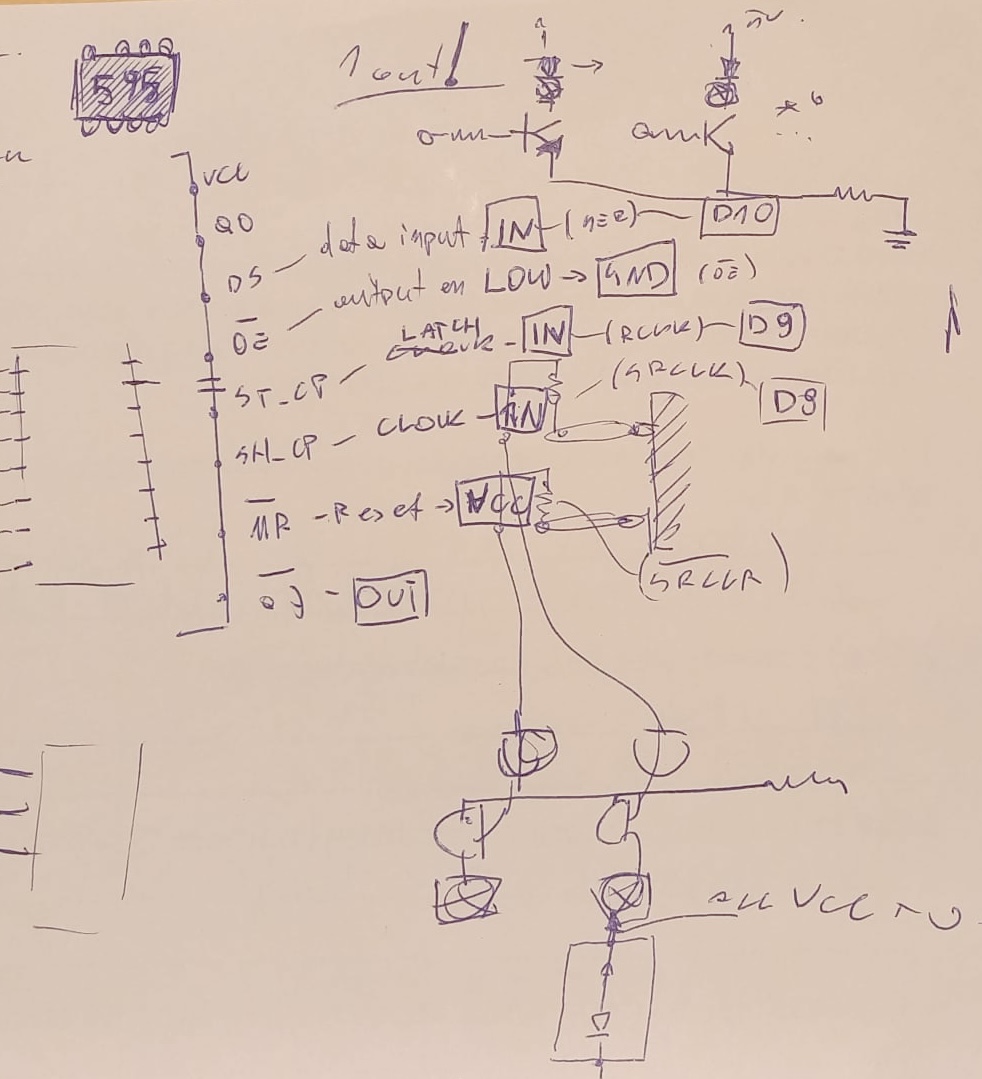 595
1 out!
VCC
Q0
DS - data input → IN - (SER) - D10
OE - output en LOW → GND (OE)
ST_CP - LATCH - IN - (RCLK) - D9
SH_CP - CLOCK - IN - (SRCLK)
MR - Reset → VCC
(SRCLR)
Q7 - OUT
ALL VCC